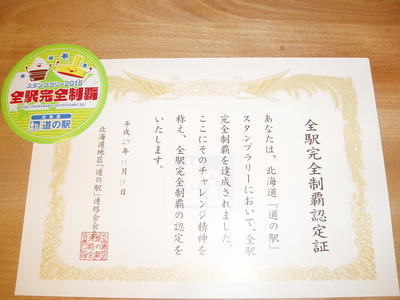 スタンプラリー2015
全駅完全制覇
北海道
道の駅
全駅完全制覇認定証
あなたは、北海道「道の駅」
スタンプラリーにおいて、全駅
完全制覇を達成されました。
ここにそのチャレンジ精神を
称え、全駅完全制覇の認定を
いたします。
平成27年11月
北海道地区「道の駅」連絡会